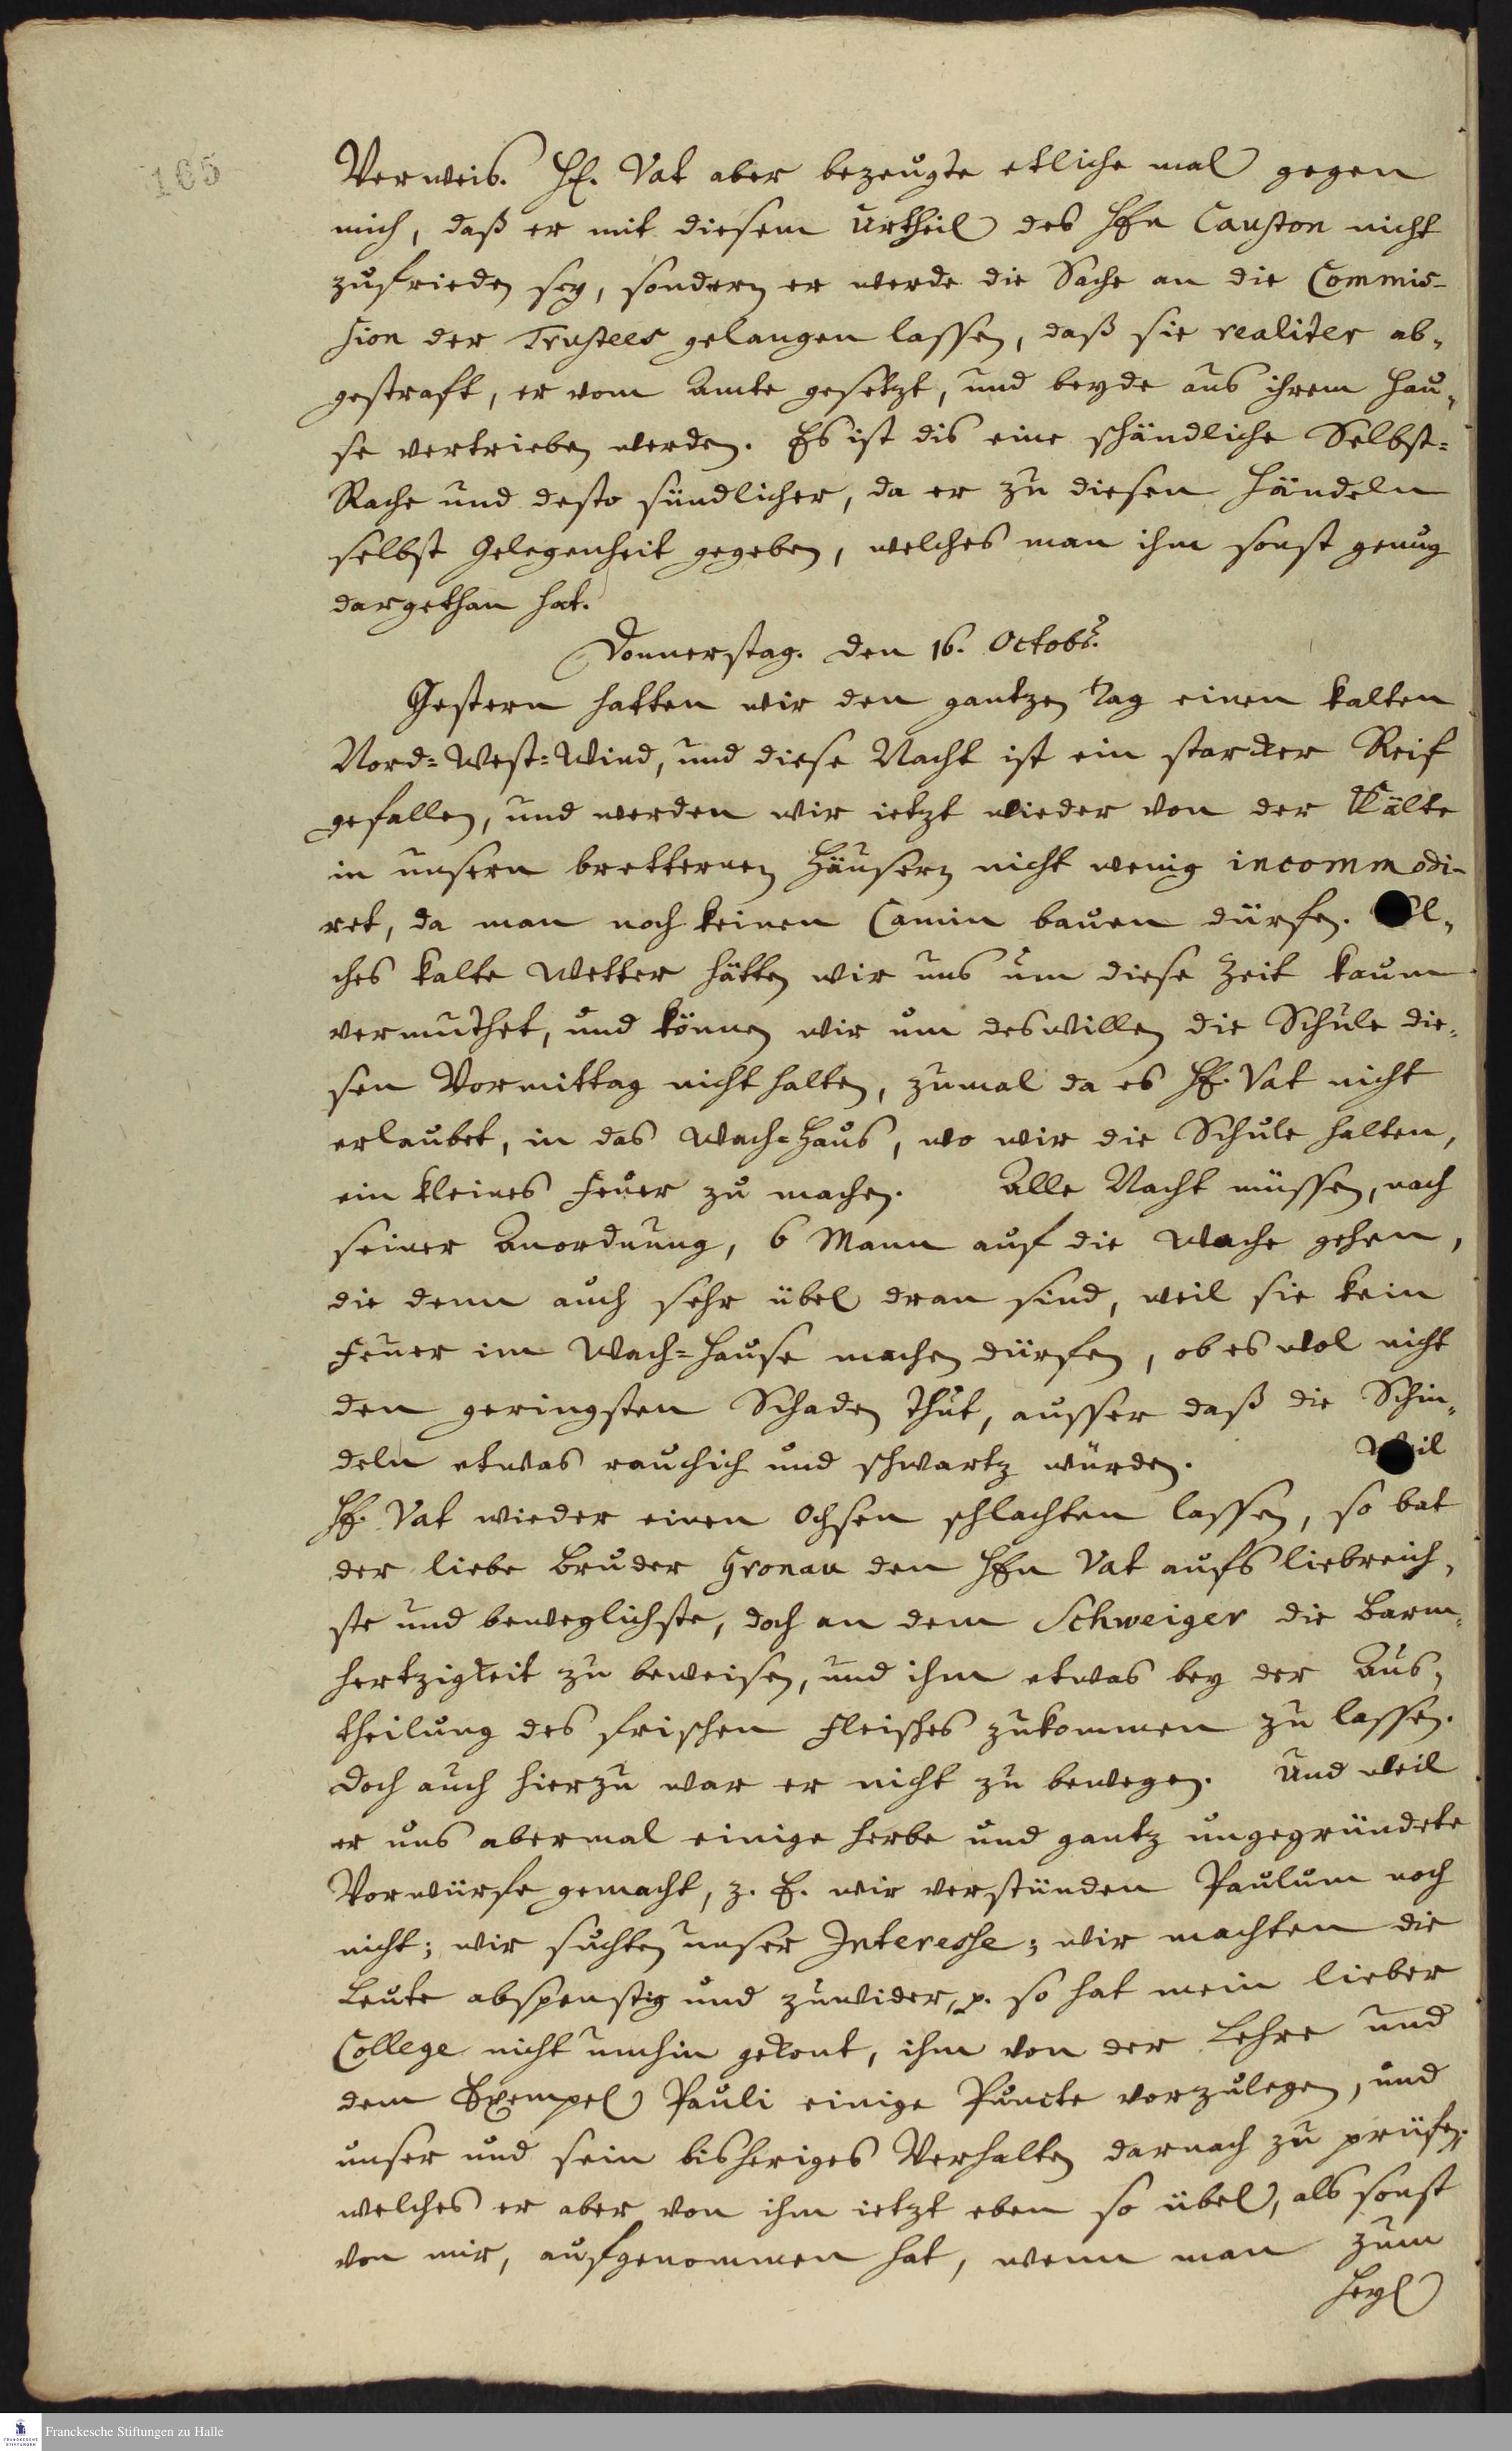 165
Verweis. H. Vat aber bezeugte etliche mal gegen
mich, daß er mit diesem Urtheil des Hn Causton nicht
zufrieden sey, sondern er werde die Sache an die Commis-
sion der Trustees gelangen lassen, daß sie realiter ab-
gestraft, er vom Amte gesetzt, und beyde aus ihrem Hau-
se vertrieben werden. Es ist dis eine schändliche Selbst-
Rache und desto sündlicher, da er zu diesen Händeln
selbst Gelegenheit gegeben, welches man ihm sonst genug
dargethan hat.
Donnerstag. den 16. Octobr.
Gestern hatten wir den gantzen Tag einen kalten
Nord-West-Wind, und diese Nacht ist ein starcker Reif
gefallen, und werden wir ietzt wieder von der Kälte
in unsern bretternen Häusern nicht wenig incommodi-
ret, da man noch keinen Camin bauen dürfen. Sol-
ches kalte Wetter hätten wir uns um diese Zeit kaum
vermuthet, und können wir um deswillen die Schule die-
sen Vormittag nicht halten, zumal da es H. Vat nicht
erlaubet, in das Wach-Haus, wo wir die Schule halten,
ein kleines Feuer zu machen. Alle Nacht müssen, nach
seiner Anordnung, 6 Mann auf die Wache gehen,
die denn auch sehr übel dran sind, weil sie kein
Feuer im Wach-Hause machen dürfen, ob es wol nicht
den geringsten Schaden thut, ausser daß die Schin-
deln etwas rauchich und schwartz würden. Weil
H. Vat wieder einen Ochsen schlachten lassen, so bat
der liebe Bruder Gronau den Hn Vat aufs liebreich-
ste und beweglichste, doch an dem Schweiger die Barm-
hertzigkeit zu beweisen, und ihm etwas bey der Aus-
theilung des frischen Fleisches zukommen zu lassen.
doch auch hierzu war er nicht zu bewegen. Und weil
er uns abermal einige herbe und gantz ungegründete
Vorwürfe gemacht, z. E. wir verstünden Paulum noch
nicht; wir suchten unser Interesse; wir machten die
Leute abspenstig und zuwider, p. so hat mein lieber
College nicht umhin gekont, ihm von der Lehre und
dem Exempel Pauli einige Puncte vorzulegen, und
unser und sein bisheriges Verhalten darnach zu prüfen,
welches er aber von ihm ietzt eben so übel, als sonst
von mir, aufgenommen hat, wenn man zum
Heyl
Franckesche Stiftungen zu Halle